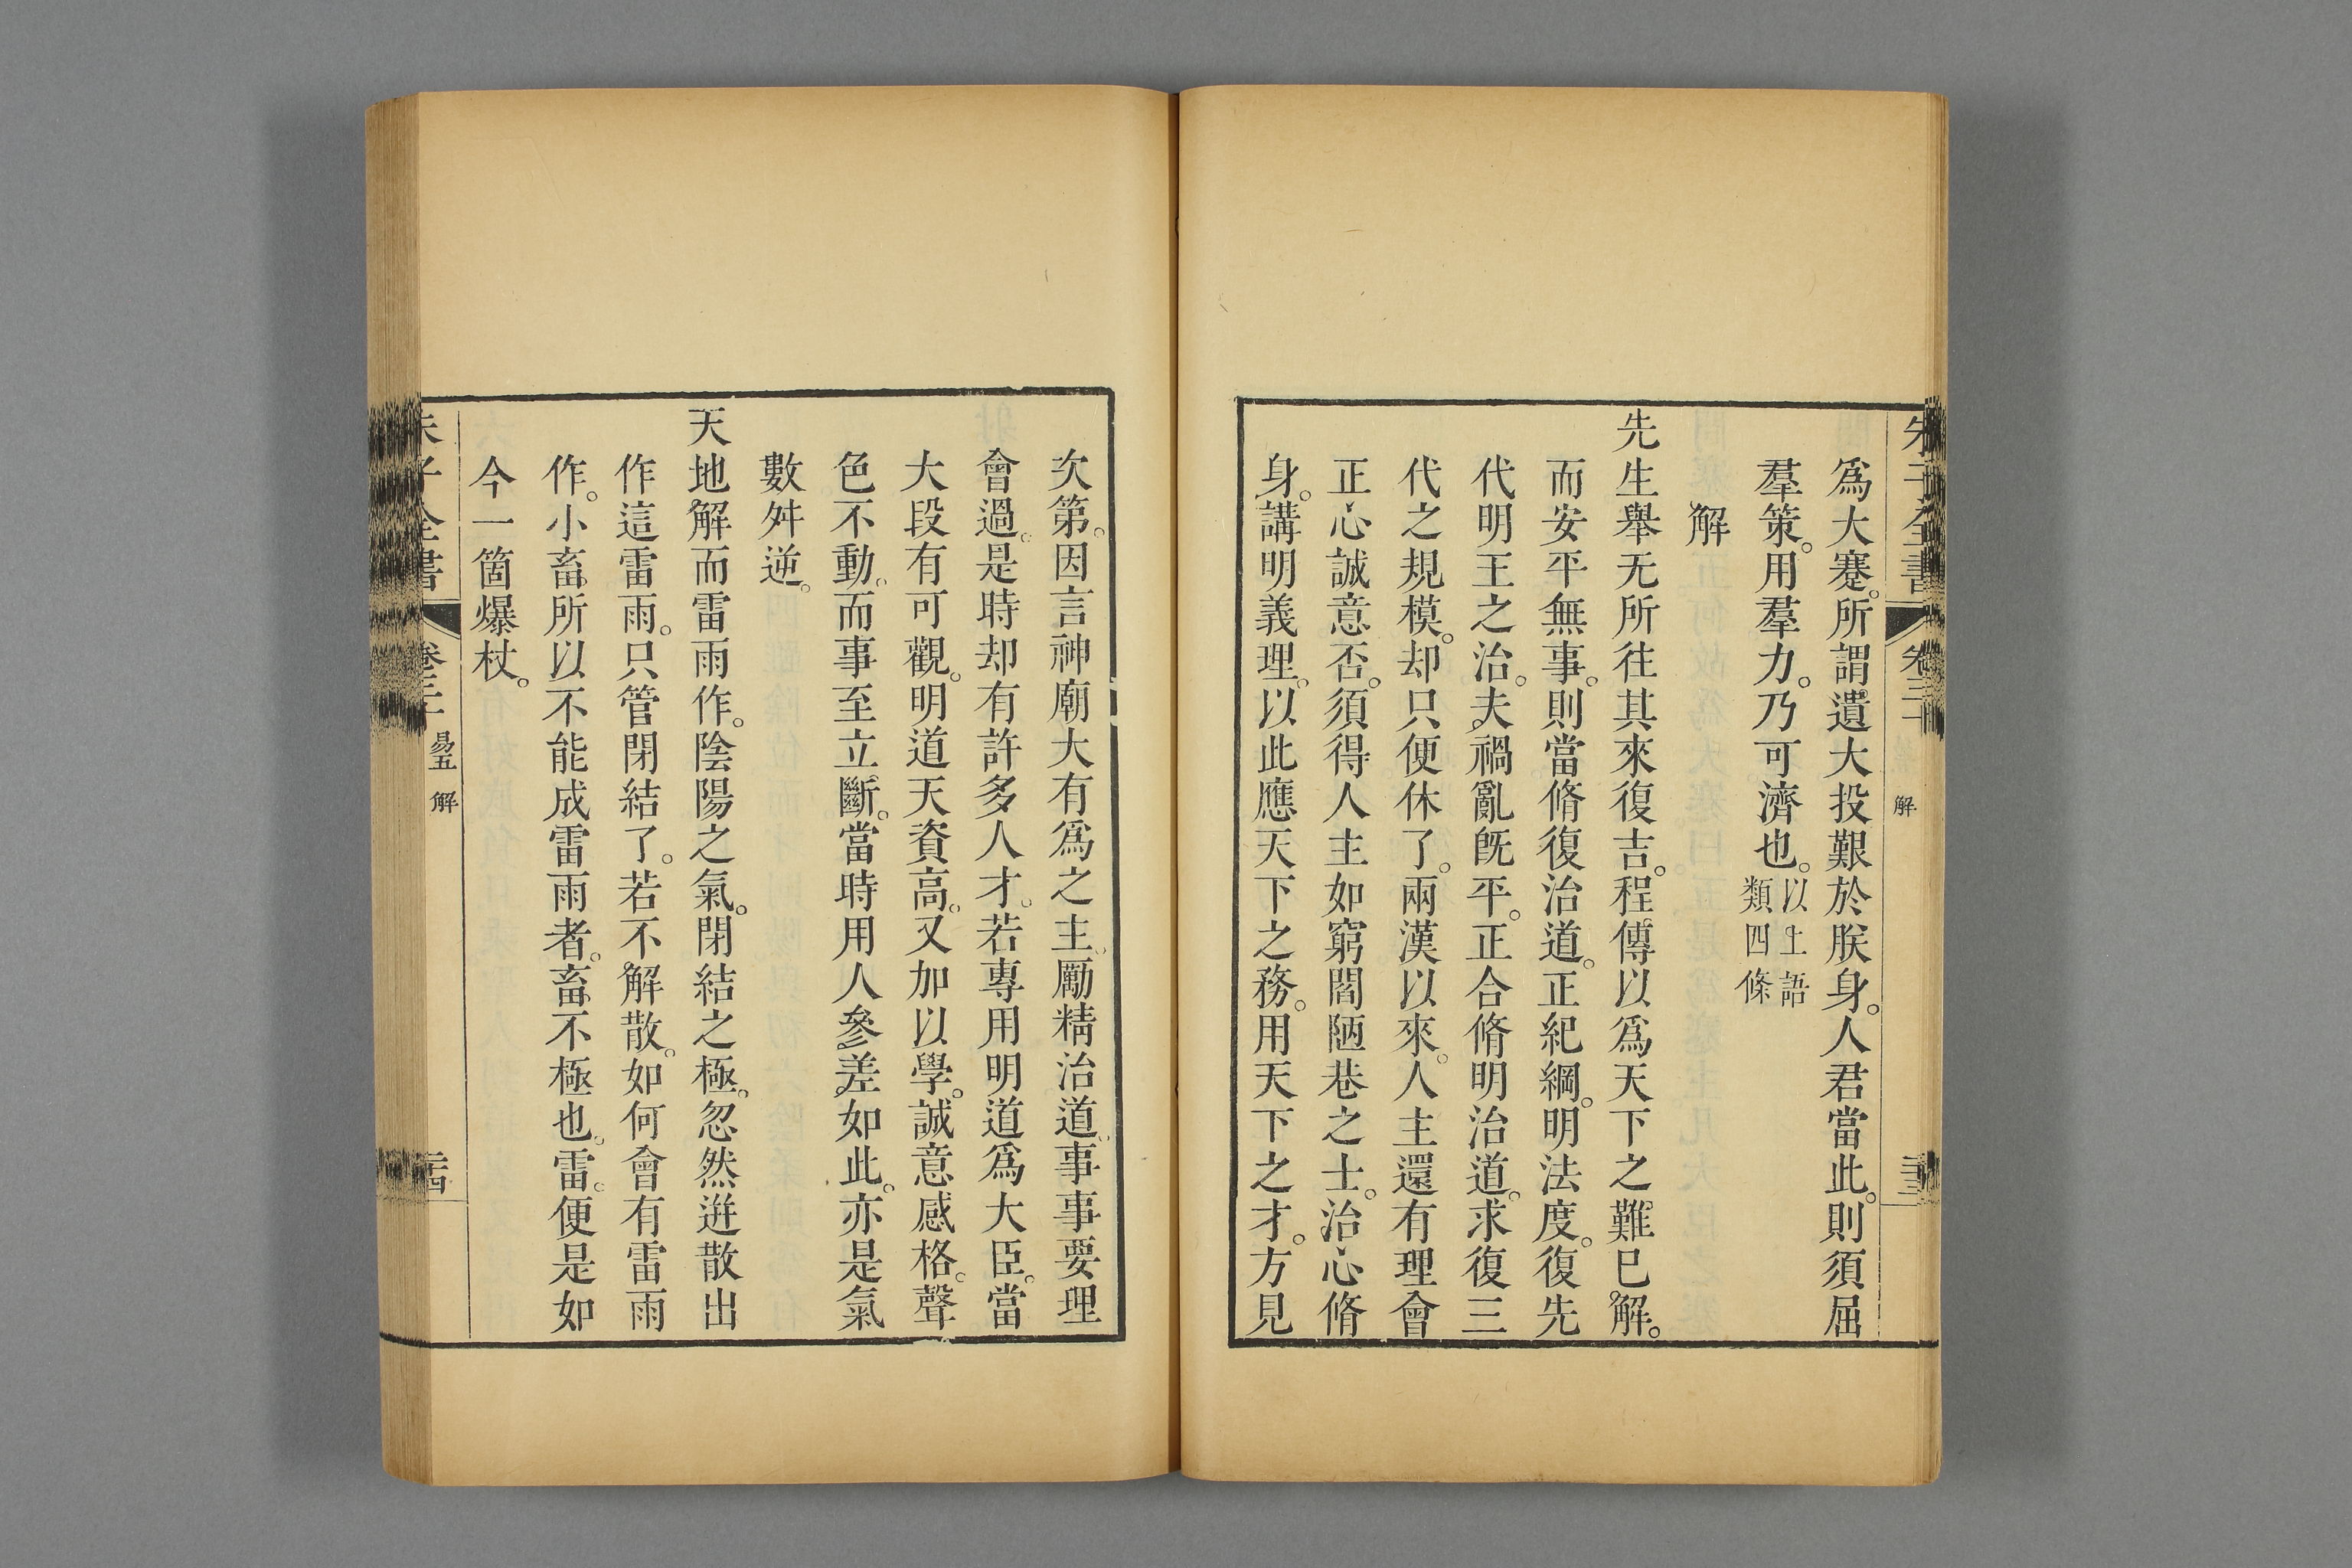 爲大蹇。所謂遺大投艱於朕身。人君當此。則須屈
羣策。用羣力。乃可濟也。以上語類四條
解
先生舉无所往其來復吉。程傳以爲天下之難已解。
而安平無事。則當脩復治道。正紀綱。明法度。復先
代明王之治。夫禍亂旣平。正合脩明治道。求復三
代之規模。却只便休了。兩漢以來。人主還有理會
正心誠意否。須得人主如窮閻陋巷之士。治心脩
身。講明義理。以此應天下之務。用天下之才。方見
解
次第。因言神廟大有爲之主。勵精治道。事事要理
會過。是時却有許多人才。若專用明道爲大臣。當
大段有可觀。明道天資高。又加以學。誠意感格。聲
色不動。而事至立斷。當時用人參差如此。亦是氣
數舛逆。
天地解而雷雨作。陰陽之氣。閉結之極。忽然迸散出
作這雷雨。只管閉結了。若不解散。如何會有雷雨
作。小畜所以不能成雷雨者。畜不極也。雷。便是如
今一箇爆杖。
朱子全書
易五 解